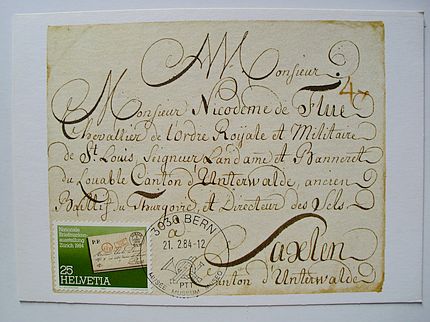 A Monsieur
Monsieur Nicodeme de Flüe
Chevallier de l'Ordre Royale et Militaire
de St. Louis, Seigneur Landamẽ et Banneret
du Louable Canton d'Unterwalde, ancien
Baillif du Thurgoire, et Directeur des Sels.
Saxlen
Canton d'Unterwalde
Nationale
Briefmarken-
ausstellung
Zürich 1984
25
HELVETIA
3030 BERN
a
21.2.84-12
PTT
MUSEUM